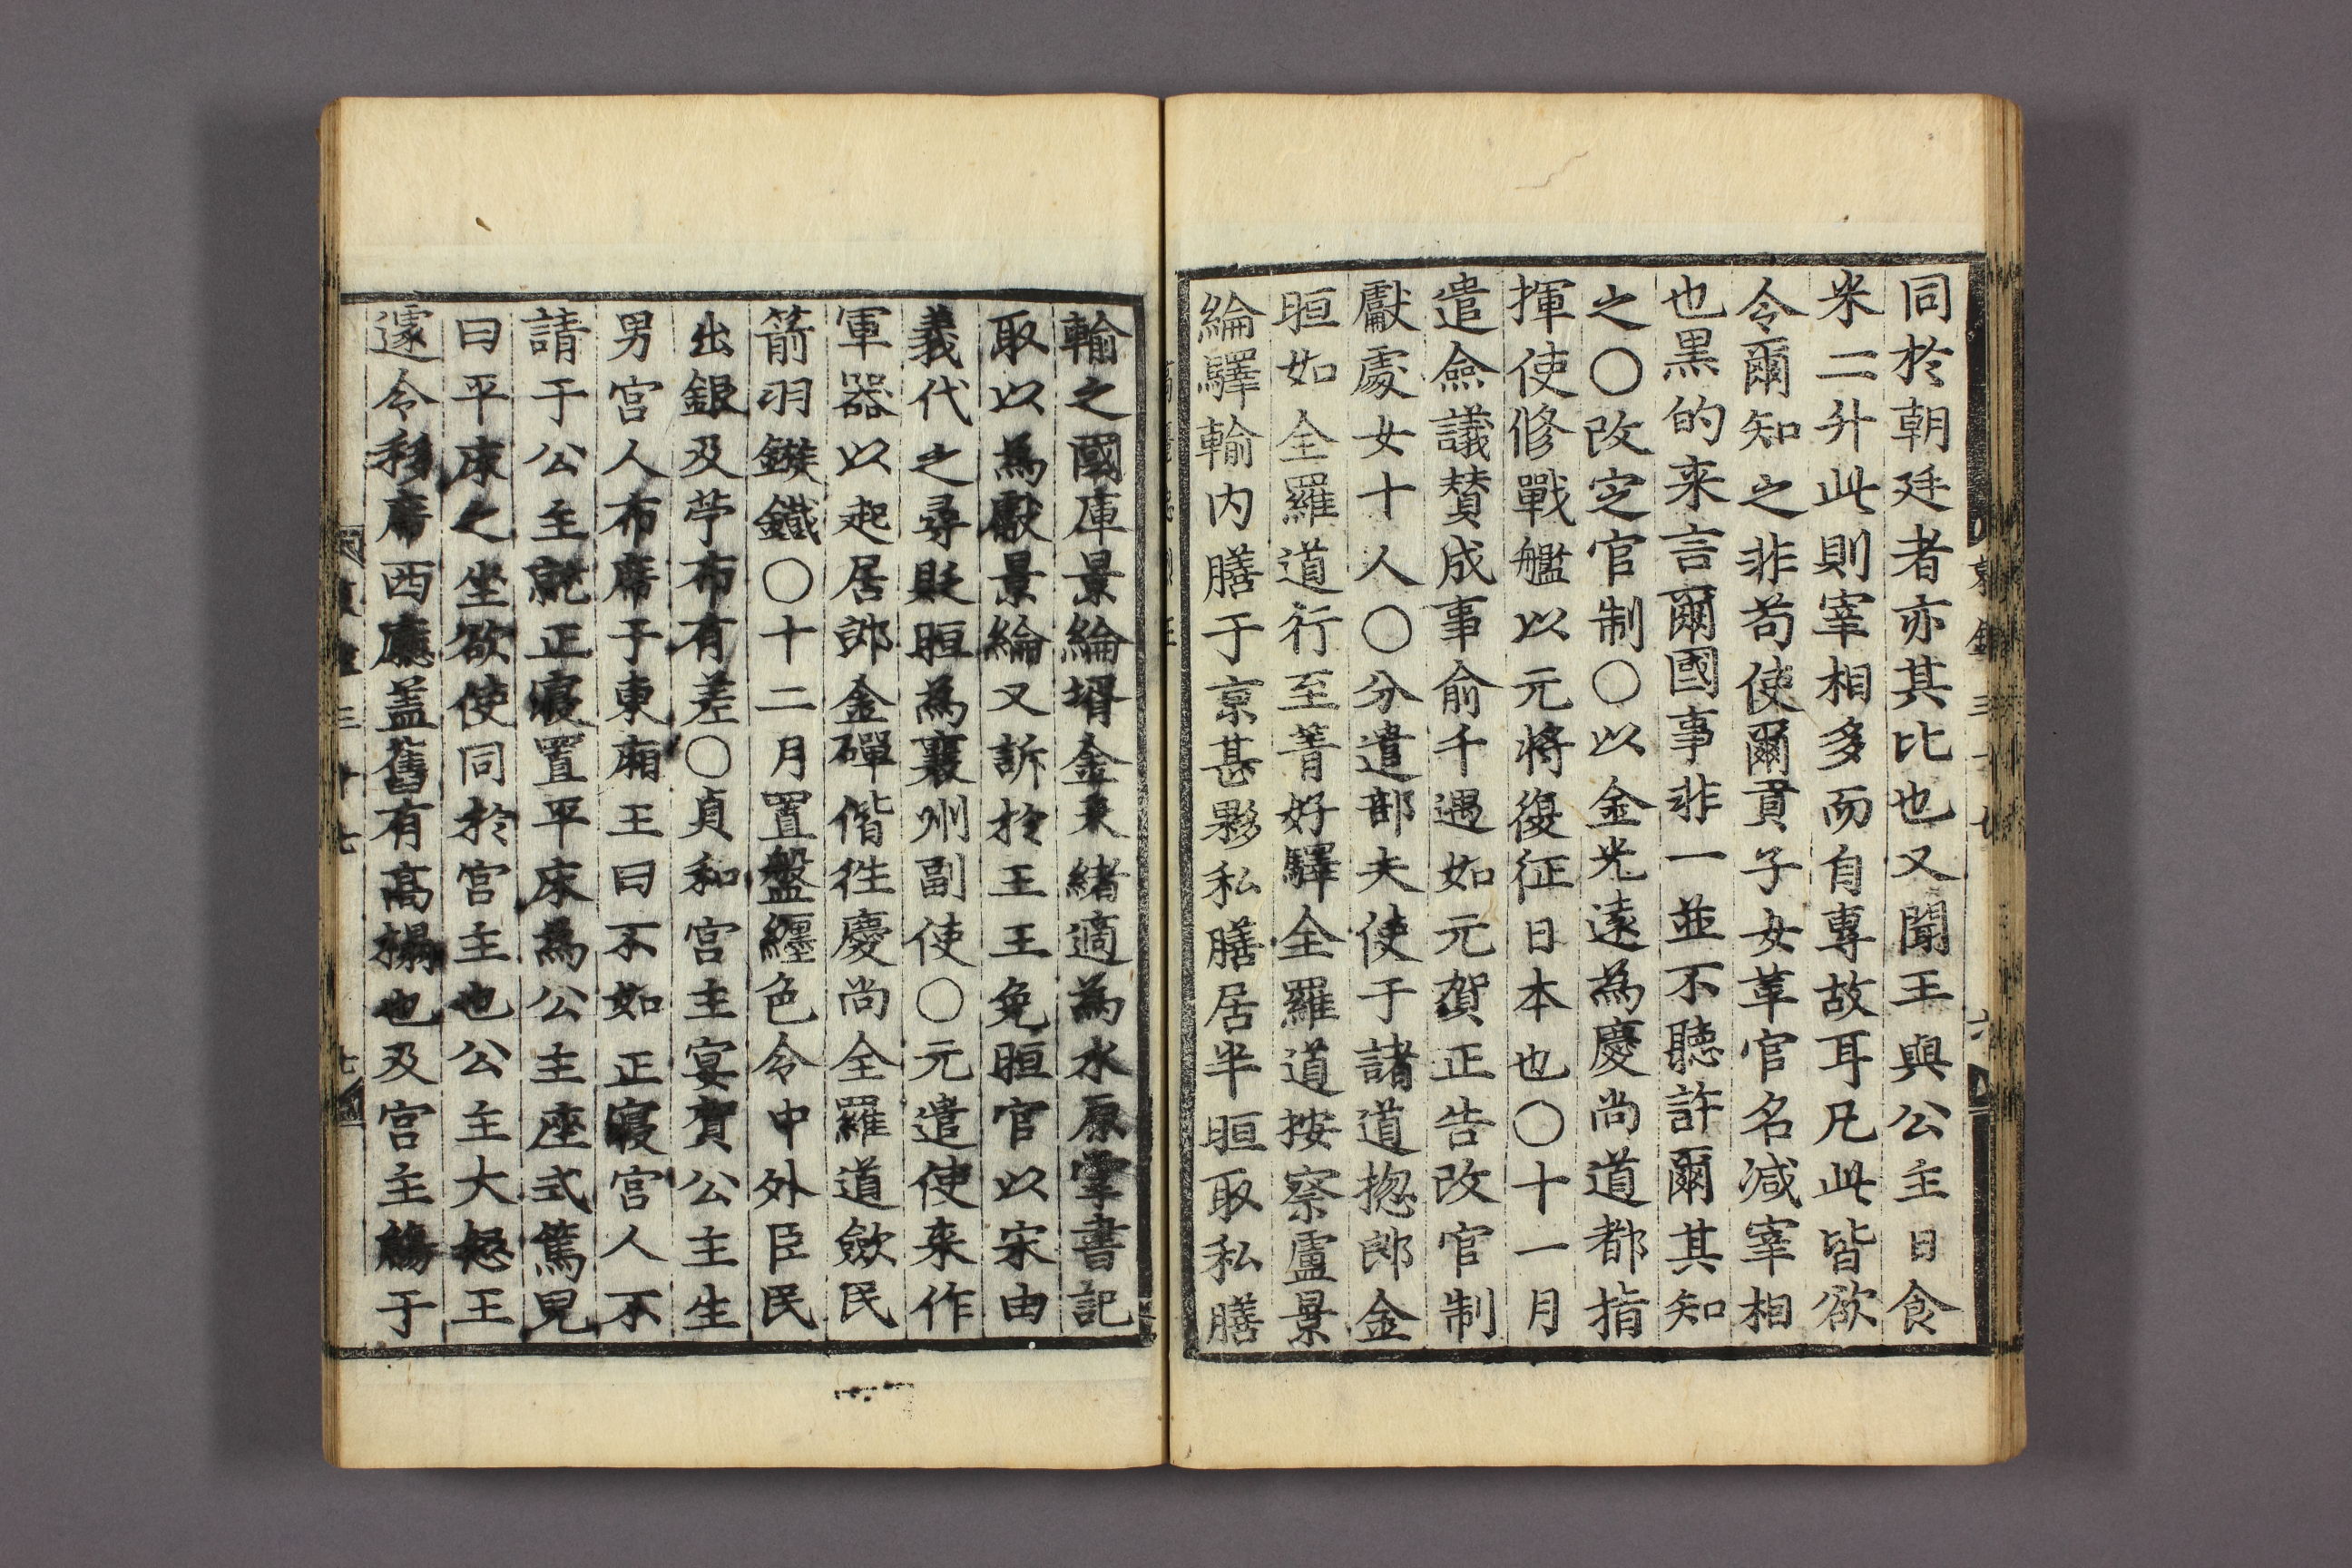 同於朝廷者亦其比也又聞王與公主日食
米二升此則宰相多而自專故耳凡此皆欲
令爾知之非苟使爾貢子女革官名减宰相
也黒的来言爾國事非一並不聽許爾其知
之○改定官制○以金光遠為慶尚道都指
揮使修戰艦以元将復征日本也○十一月
遣僉議贊成事俞千遇如元賀正告改官制
獻處女十人○分遣部夫使于諸道揔郎金
晅如全羅道行至菁好驛全羅道按察盧景
綸驛輸内膳于京甚夥私膳居半晅取私膳
輸之國庫景綸壻金承緒適為水原掌書記
取以為獻景綸又訴於王王免晅官以宋由
義代之尋貶晅為襄州副使○元遣使来作
軍器以起居郎金磾偕徃慶尚全羅道歛民
箭羽鏃鐵○十二月置盤纒色令中外臣民
出銀及苧布有差○貞和宮主宴賀公主生
男宮人布席于東廂王曰不如正寢宮人不
請于公主就正寢置平床為公主座式篤兒
曰平床之坐欲使同於宮主也公主大怒王
遽令移席西廳盖舊有髙榻也及宮主觴于